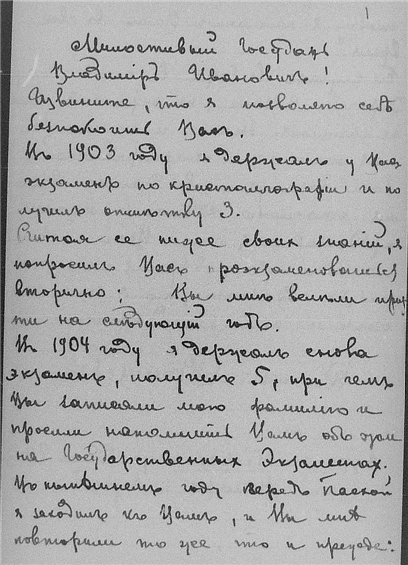 1
Милостивый Государь
Владимiръ Ивановичъ!
Извините, что я позволяю себѣ
безпокоить Васъ.
Въ 1903 году я держалъ у Васъ
экзаменъ по кристаллографiи и по
лучилъ отмѣтку 3.
Считая ее ниже своихъ знанiй, я
попросилъ Васъ проэкзаменоваться
вторично; Вы мнѣ велѣли прiй
ти на слѣдующiй годъ.
Въ 1904 году я держалъ снова
экзаменъ, получилъ 5, при чемъ
Вы записали мою фамилiю и
просили напомнить Вамъ объ этомъ
на Государственныхъ Экзаменахъ.
Въ нынѣшнемъ году передъ Пасхой
я заходилъ къ Вамъ, и Вы мнѣ
повторили то же что и прежде: